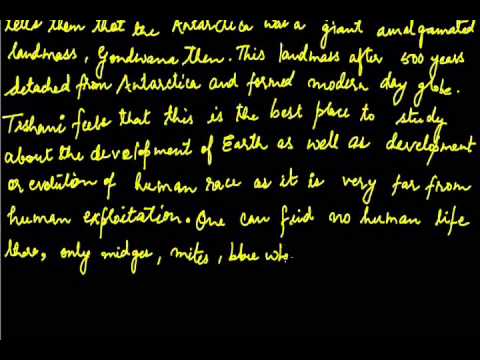 tells them that the Antarctica was a giant amalgamated
landmass, Gondwana then. This landmass after 500 years
detached from Antarctica and formed modern day globe.
Tishani feels that this is the best place to study
about the development of Earth as well as development
or evolution of human race as it is very far from
human exploitation. One can find no human life
there, only midges, mites, blue wha